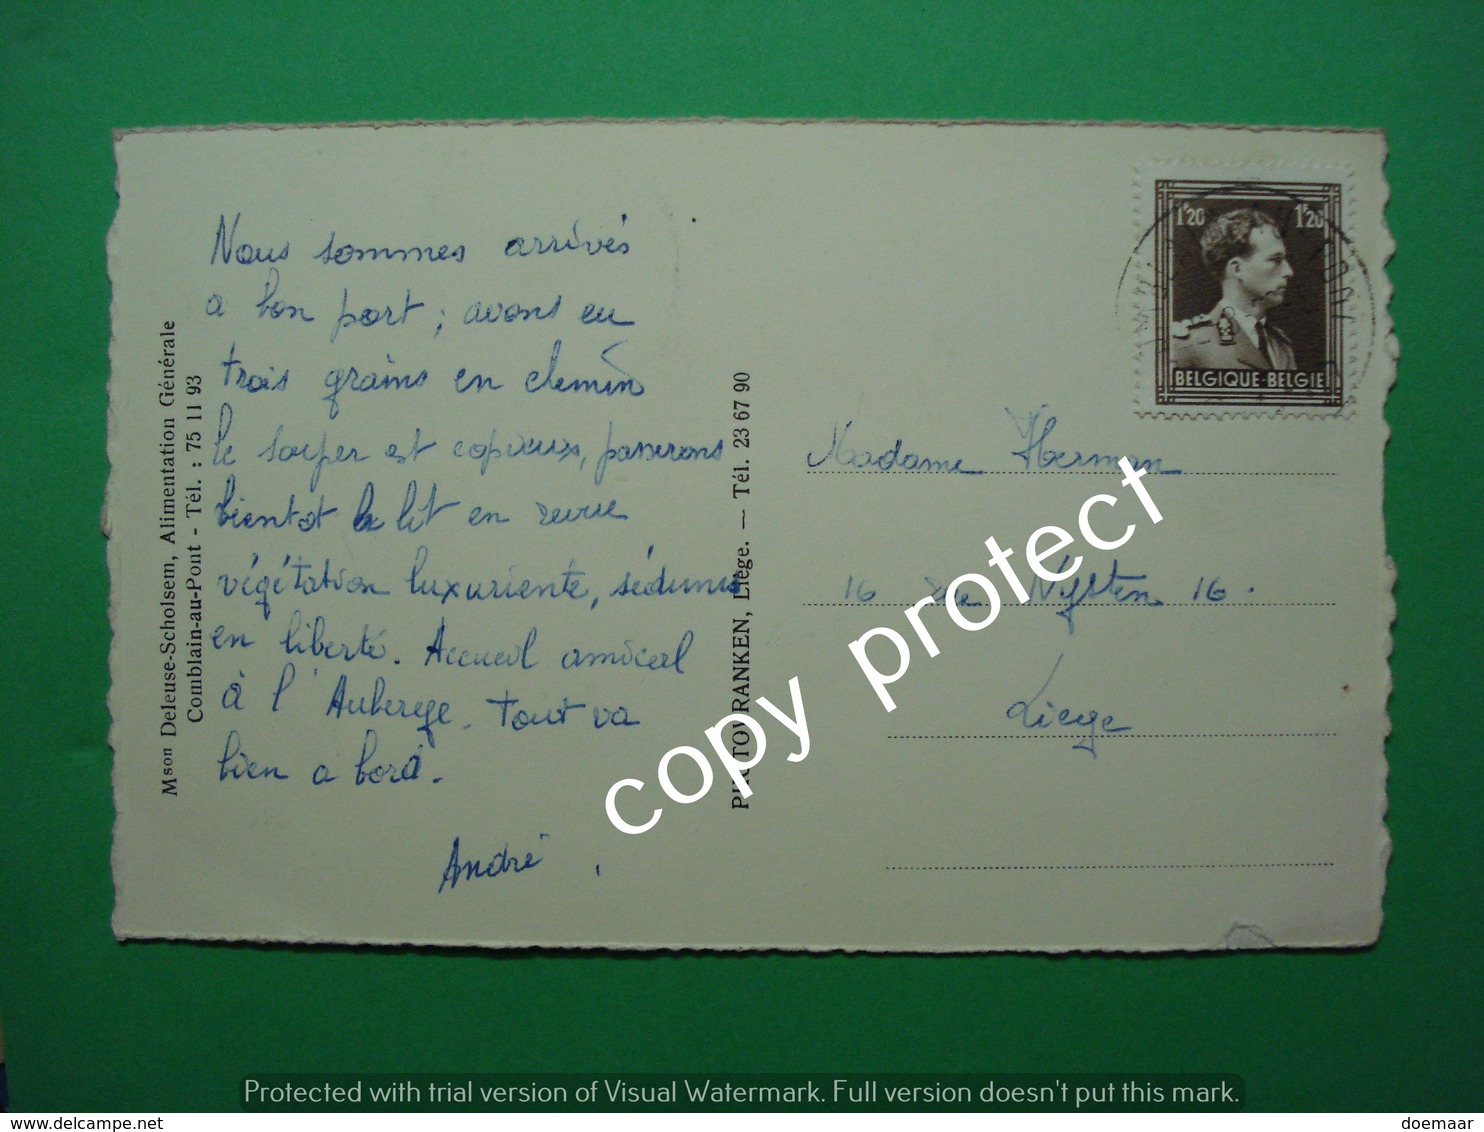 Nous sommes arrivés
a bon port ; avons eu
trois grains en chemin
le souper est copieux, passerons
bientot le lit en revue
végétation luxuriente, sédums
en liberté. Accueil amical
à l'Auberge. Tout va
bien a bord.
André.
Mson Deleuse-Scholsem, Alimentation Générale
Comblain-au-Pont - Tél. : 75 11 93
PHOTO VRANKEN, Liége. — Tél. 23 67 90
1F20 1F20
BELGIQUE-BELGIE
Madame Herman
16 rue Nysten 16.
Liege
copy protect
Protected with trial version of Visual Watermark. Full version doesn't put this mark.
delcampe.net
doemaar